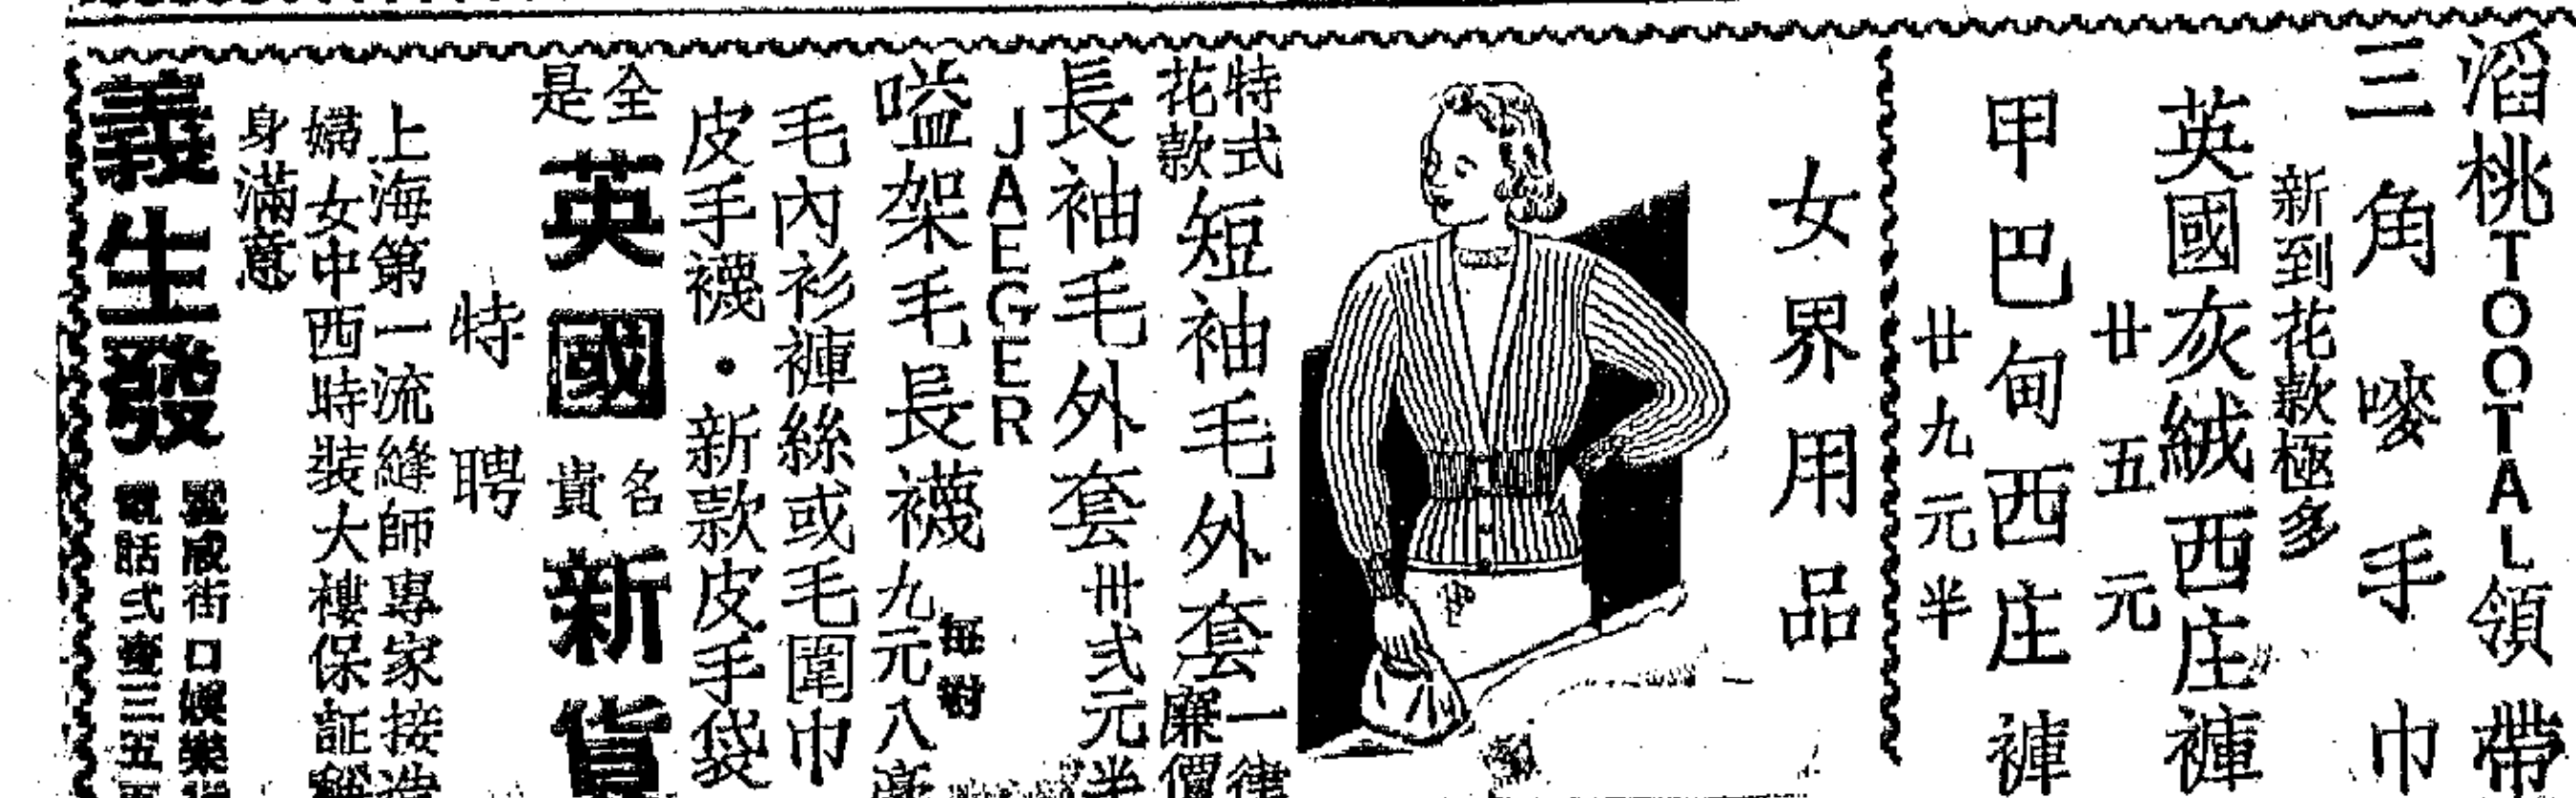 滔桃TOOTAL領帶
三角嘜手巾
新到花款極多
英國灰絨西庄褲
廿五元
甲巴甸西庄褲
廿九元半
女界用品
特式花款短袖毛外套一律廉價
長袖毛外套卅弍元半
JAEGER
嗌架毛長襪每對九元八毫
毛內衫褲絲或毛圍巾
皮手襪·新款皮手袋
全是英國名貴新貨
特聘
上海第一流縫師專家接造
婦女中西時裝大樓保証
身滿意
義生發
威街口
電話弍三五